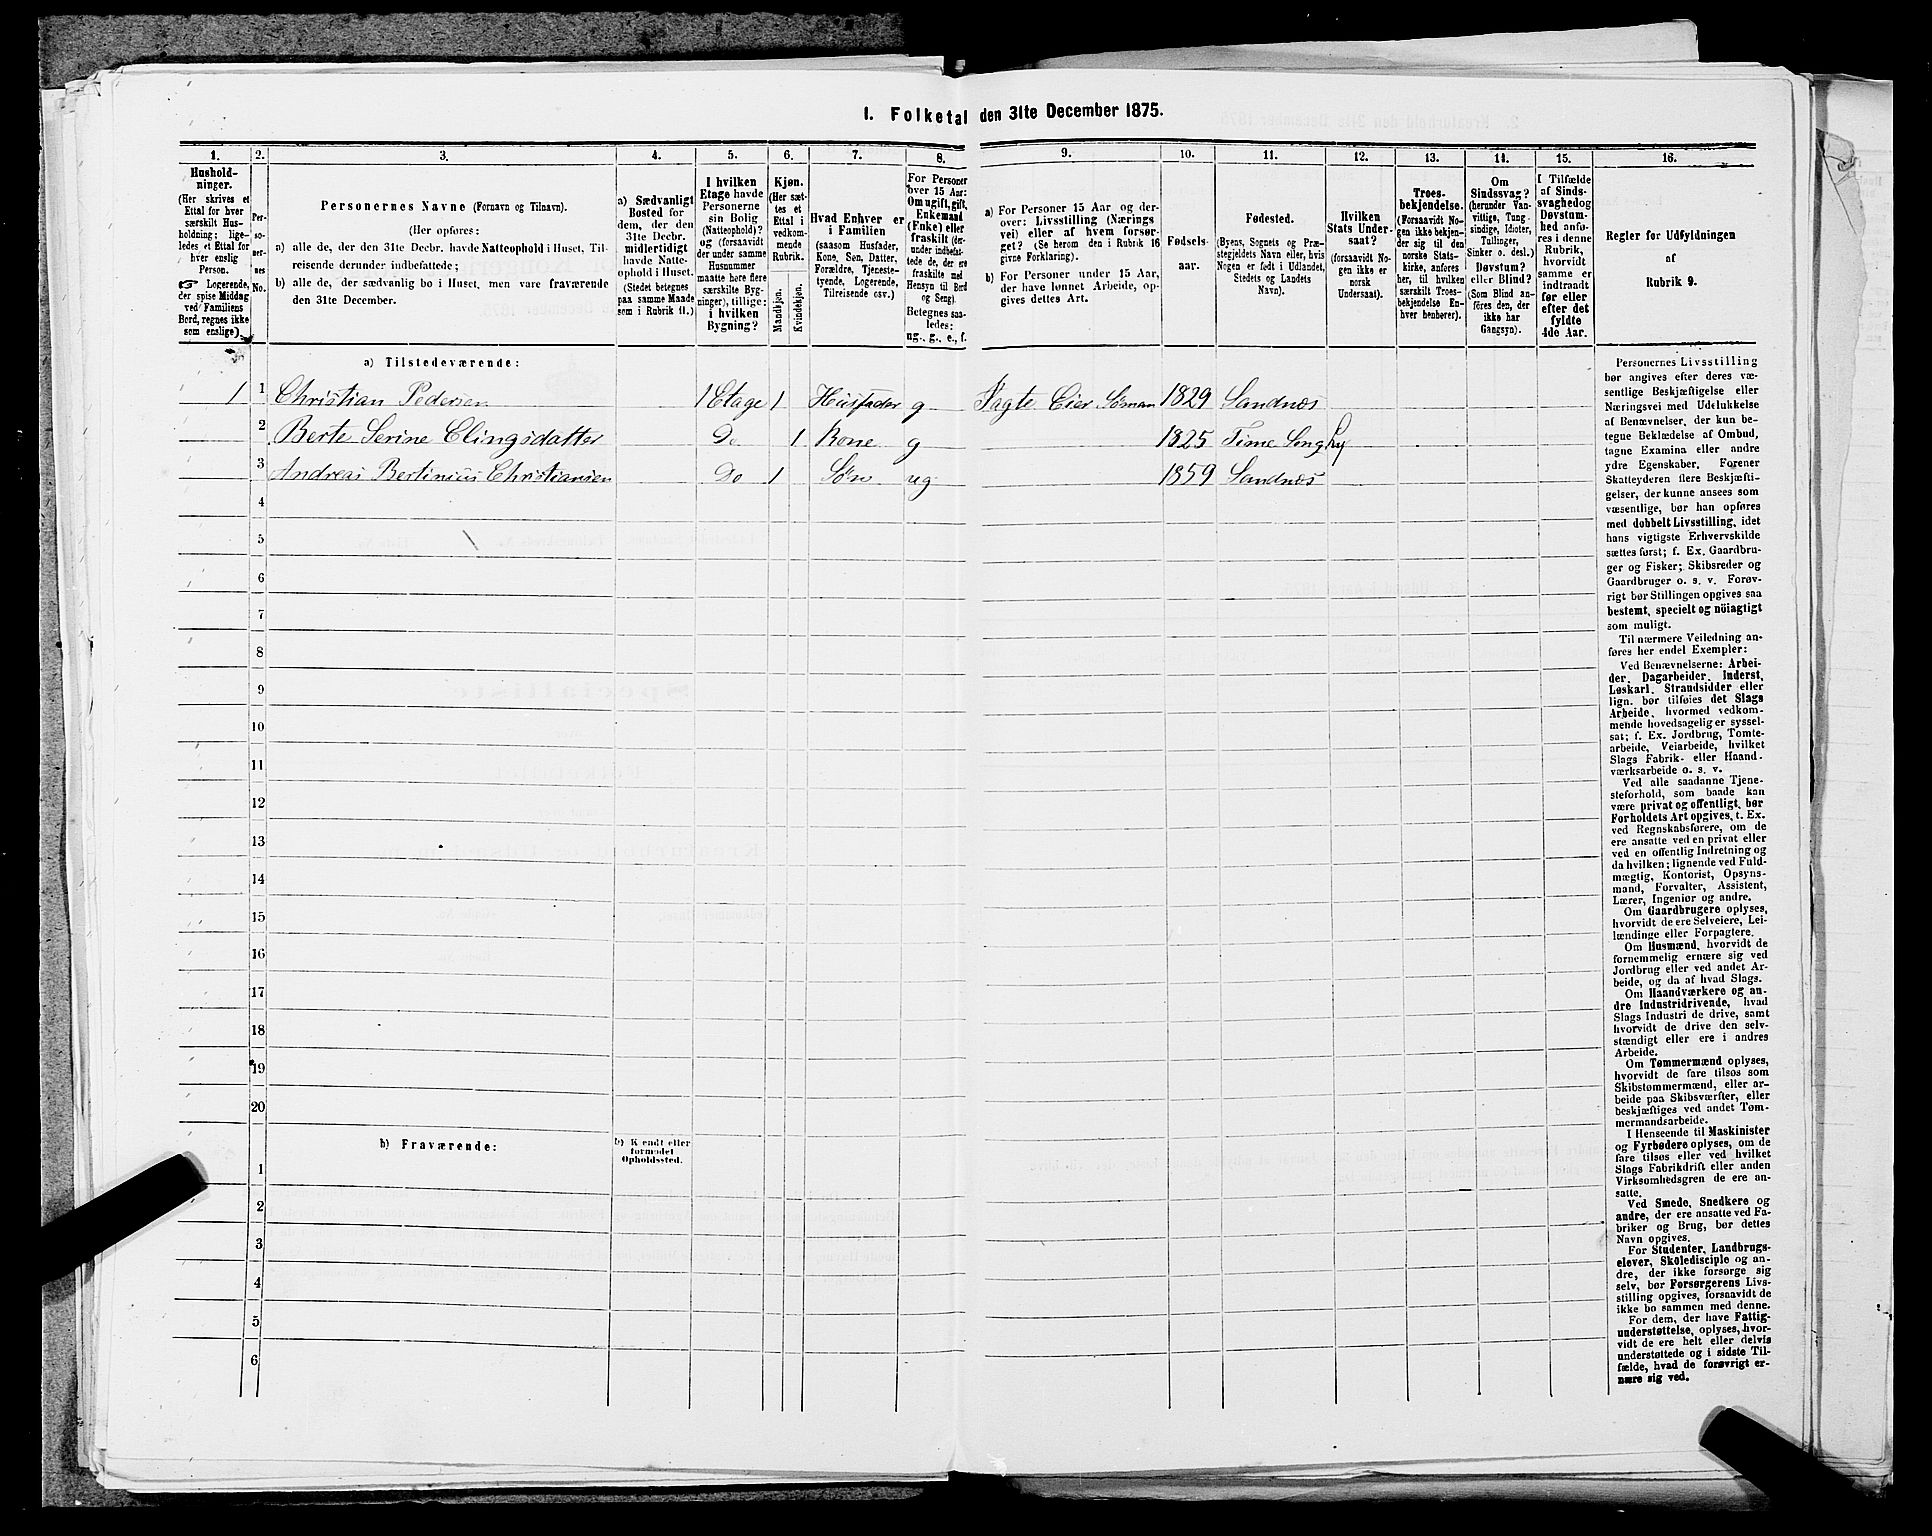 1. Folketal den 31te December 1875.
1. 2. 3. 4. 5. 6. 7. 8. 9. 10. 11. 12. 13. 14. 15. 16.
Hushold-
ninger.
(Her skrives et
Ettal for hver
særskilt Hus-
holdning; lige-
ledes et Ettal for
hver enslig
Person.
☞ Logerende,
der spise Middag
ved Familiens
Bord, regnes ikke
som enslige).
Per-
so-
ner-
nes
No.
Personernes Navne (Fornavn og Tilnavn).
(Her opføres:
a) alle de, der den 31te Decbr. havde Natteophold i Huset, Til-
reisende derunder indbefattede;
b) alle de, der sædvanlig bo i Huset, men vare fraværende
den 31te December.
a) Sædvanligt
Bosted for
dem, der den
31te Decbr.
midlertidigt
havde Natte-
ophold i Huset.
(Stedet betegnes
paa samme Maade
som i Rubrik 11.)
I hvilken
Etage havde
Personerne
sin Bolig
(Natteophold)?
og (forsaavidt
der under samme
Husnummer
maatte høre flere
særskilte Byg-
ninger), tillige:
i hvilken
Bygning?
Kjøn.
(Her sæt-
tes et
Ettal i
vedkom-
mende
Rubrik.
Mandkjøn.
Kvindekjøn.
Hvad Enhver er
i Familien
(saasom Husfader,
Kone, Søn, Datter,
Forældre, Tjeneste-
tyende, Logerende,
Tilreisende osv.)
For Personer
over 15 Aar:
Om ugift, gift,
Enkemand
(Enke) eller
fraskilt (der-
under indbefat-
tede de, der ere
fraskilte med
Hensyn til Bord
og Seng).
Betegnes saa-
ledes:
ug., g., e., f.
a) For Personer 15 Aar og der-
over: Livsstilling (Nærings
vei) eller af hvem forsør-
get? (Se herom den i Rubrik 16
givne Forklaring).
b) For Personer under 15 Aar,
der have lønnet Arbeide, op-
gives dettes Art.
Fødsels-
aar.
Fødested.
(Byens, Sognets og Præ-
stegjeldets Navn eller, hvis
Nogen er født i Udlandet,
Stedets og Landets
Navn).
Hvilken
Stats Under-
saat?
(forsaavidt No-
gen ikke er
norsk
Undersaat).
Troes-
bekjendelse.
(Forsaavidt No-
gen ikke bekjen-
der sig til den
norske Stats-
kirke, anføres
her, til hvilken
særskilt Troes-
bekjendelse En-
hver henhører).
Om
Sindssvag?
(herunder Van-
vittige, Tung-
sindige, Idioter,
Tullinger,
Sinker o. desl.)
Døvstum?
eller Blind?
(Som Blind an-
føres den, der
ikke har
Gangsyn).
I Tilfælde
af Sinds-
svaghed og
Døvstum-
hed anfø-
res i denne
Rubrik,
hvorvidt
samme er
indtraadt
før eller
efter det
fyldte
4de Aar.
Regler for Udfyldningen
af
Rubrik 9.
a) Tilstedeværende:
1 1 Christian Pedersen 1 Etage 1 Husfader g Jagte Eier Søman 1829 Sandnæs
2 Berte Serine Elingsdatter Do 1 Kone g 1825 Time
3 Andreas Bertinius Christiansen Do 1 Søn ug 1859 Sandnæs
4
5
6
7
8
9
10
11
12
13
14
15
16
17
18
19
20
b) Fraværende:
b) Kjendt eller
formodet
Opholdssted.
1
2
3
4
5
6
Personernes Livsstilling
bør angives efter deres væ-
sentlige Beskjæftigelse eller
Næringsvei med Udelukkelse
af Benævnelser, der kun be-
tegne Beklædelse af Ombud,
tagne Examina eller andre
ydre Egenskaber. Forener
Skatteyderen flere Beskjæfti-
gelser, der kunne ansees som
væsentlige, bør han opføres
med dobbelt Livsstilling, idet
hans vigtigste Erhvervskilde
sættes først; f. Ex. Gaardbru-
ger og Fisker; Skibsreder og
Gaardbruger o. s. v. Forøv-
rigt bør Stillingen opgives saa
bestemt, specielt og nöiagtigt
som muligt.
Til nærmere Veiledning an-
føres her endel Exempler:
Ved Benævnelserne: Arbei-
der, Dagarbeider, Inderst,
Løskarl, Strandsidder eller
lign. bør tilføies det Slags
Arbeide, hvormed vedkom-
mende hovedsagelig er syssel-
sat; f. Ex. Jordbrug, Tomte-
arbeide, Veiarbeide, hvilket
Slags Fabrik- eller Haand-
værksarbeide o. s. v.
Ved alle saadanne Tjene-
steforhold, som baade kan
være privat og offentligt, bør
Forholdets Art opgives, t. Ex.
ved Regnskabsførere, om de
ere ansatte ved en privat eller
ved en offentlig Indretning og
da hvilken; lignende ved Fuld-
mægtig, Kontorist, Opsyns-
mand, Forvalter, Assistent,
Lærer, Ingeniør og andre.
Om Gaardbrugere oplyses,
hvorvidt de ere Selveiere, Lei-
lændinge eller Forpagtere.
Om Husmænd, hvorvidt de
fornemmelig ernære sig ved
Jordbrug eller ved andet Ar-
beide, og da af hvad Slags.
Om Haandværkere og an-
dre Industridrivende, hvad
Slags Industri de drive, samt
hvorvidt de drive den selv-
stændigt eller ere i andres
Arbeide.
Om Tømmermænd oplyses,
hvorvidt de fare tilsøs som
Skibstømmermænd, eller ar-
beide paa Skibsværfter, eller
beskjæftiges ved andet Tøm-
mermandsarbeide.
I Henseende til Maskinister
og Fyrbødere oplyses, om de
fare tilsøs eller ved hvilket
Slags Fabrikdrift eller anden
Virksomhedsgren de ere an-
satte.
Ved Smede, Snedkere og
andre, der ere ansatte ved Fa-
briker og Brug, bør dettes
Navn opgives.
For Studenter, Landbrugs-
elever, Skoledisciple og an-
dre, der ikke forsørge sig
selv, bør Forsørgerens Livs-
stilling opgives, forsaavidt de
ikke bo sammen med denne.
For dem, der have Fattig-
understøttelse, oplyses, hvor-
vidt de ere helt eller delvis
understøttede og i sidste Til-
fælde, hvad de forøvrigt er-
nære sig ved.